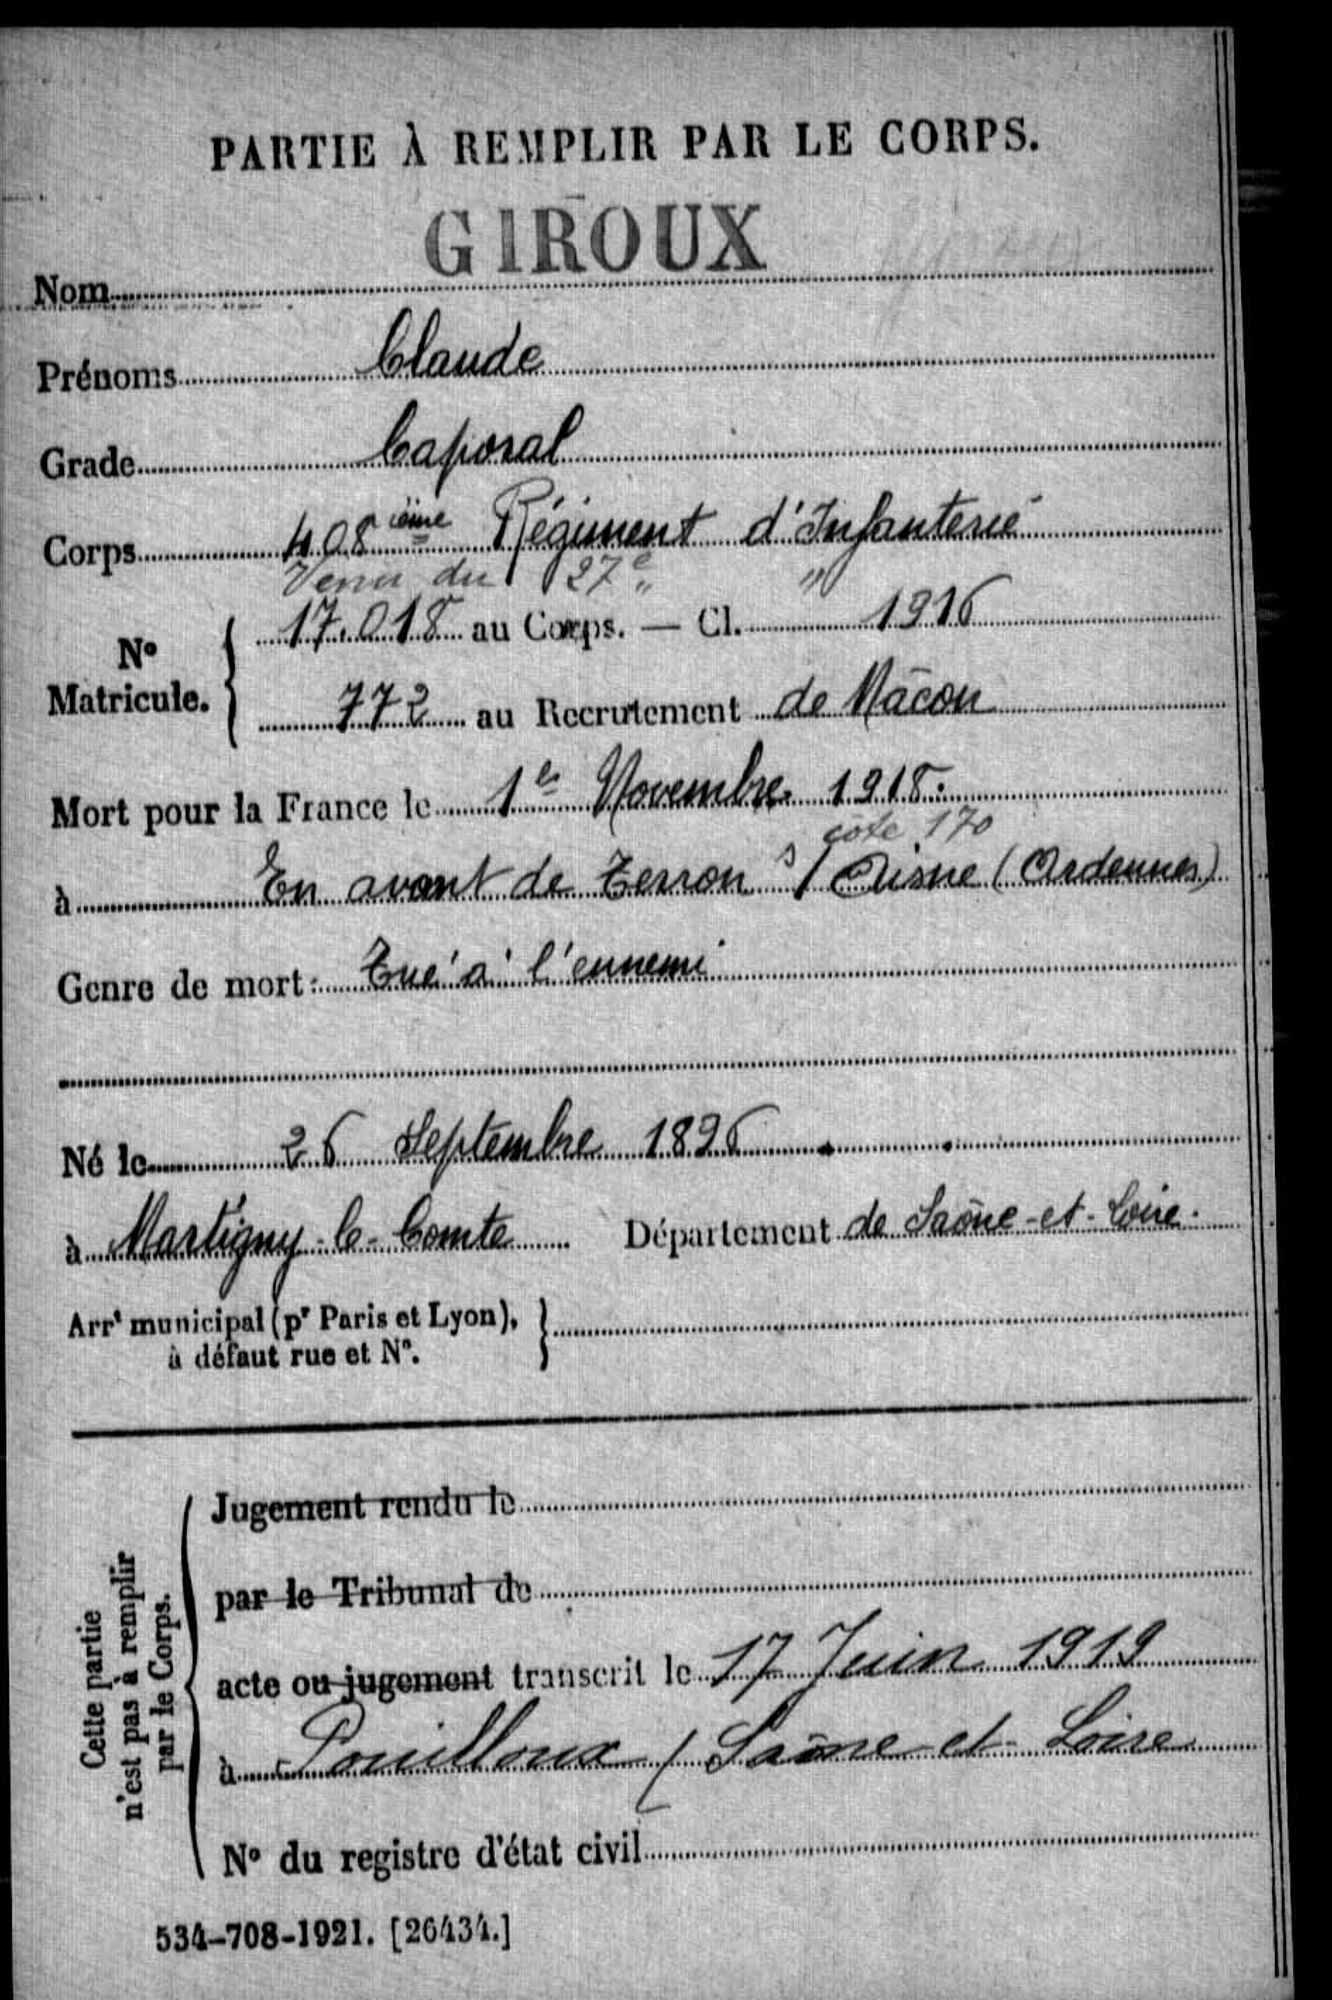 PARTIE À REMPLIR PAR LE CORPS.
GIROUX
Nom
Prénoms Claude
Grade Caporal
Corps 408ième Régiment d'Infanterie
Venu du 27e " "
17.018 au Corps. — Cl. 1916
No Matricule.
772 au Recrutement de Mâcon
Mort pour la France le 1er Novembre 1918.
côte 170
à En avant de Terron s/ Aisne (Ardennes)
Genre de mort: Tué à l'ennemi
Né le 26 Septembre 1896
à Martigny-le-Comte Département de Saône-et-Loire.
Arrt municipal (pr Paris et Lyon),
à défaut rue et No.
Cette partie
n'est pas à remplir
par le Corps.
Jugement rendu le
par le Tribunal de
acte ou jugement transcrit le 17 Juin 1919
à Pouilloux (Saône et Loire
No du registre d'état civil
534-708-1921. [26434.]